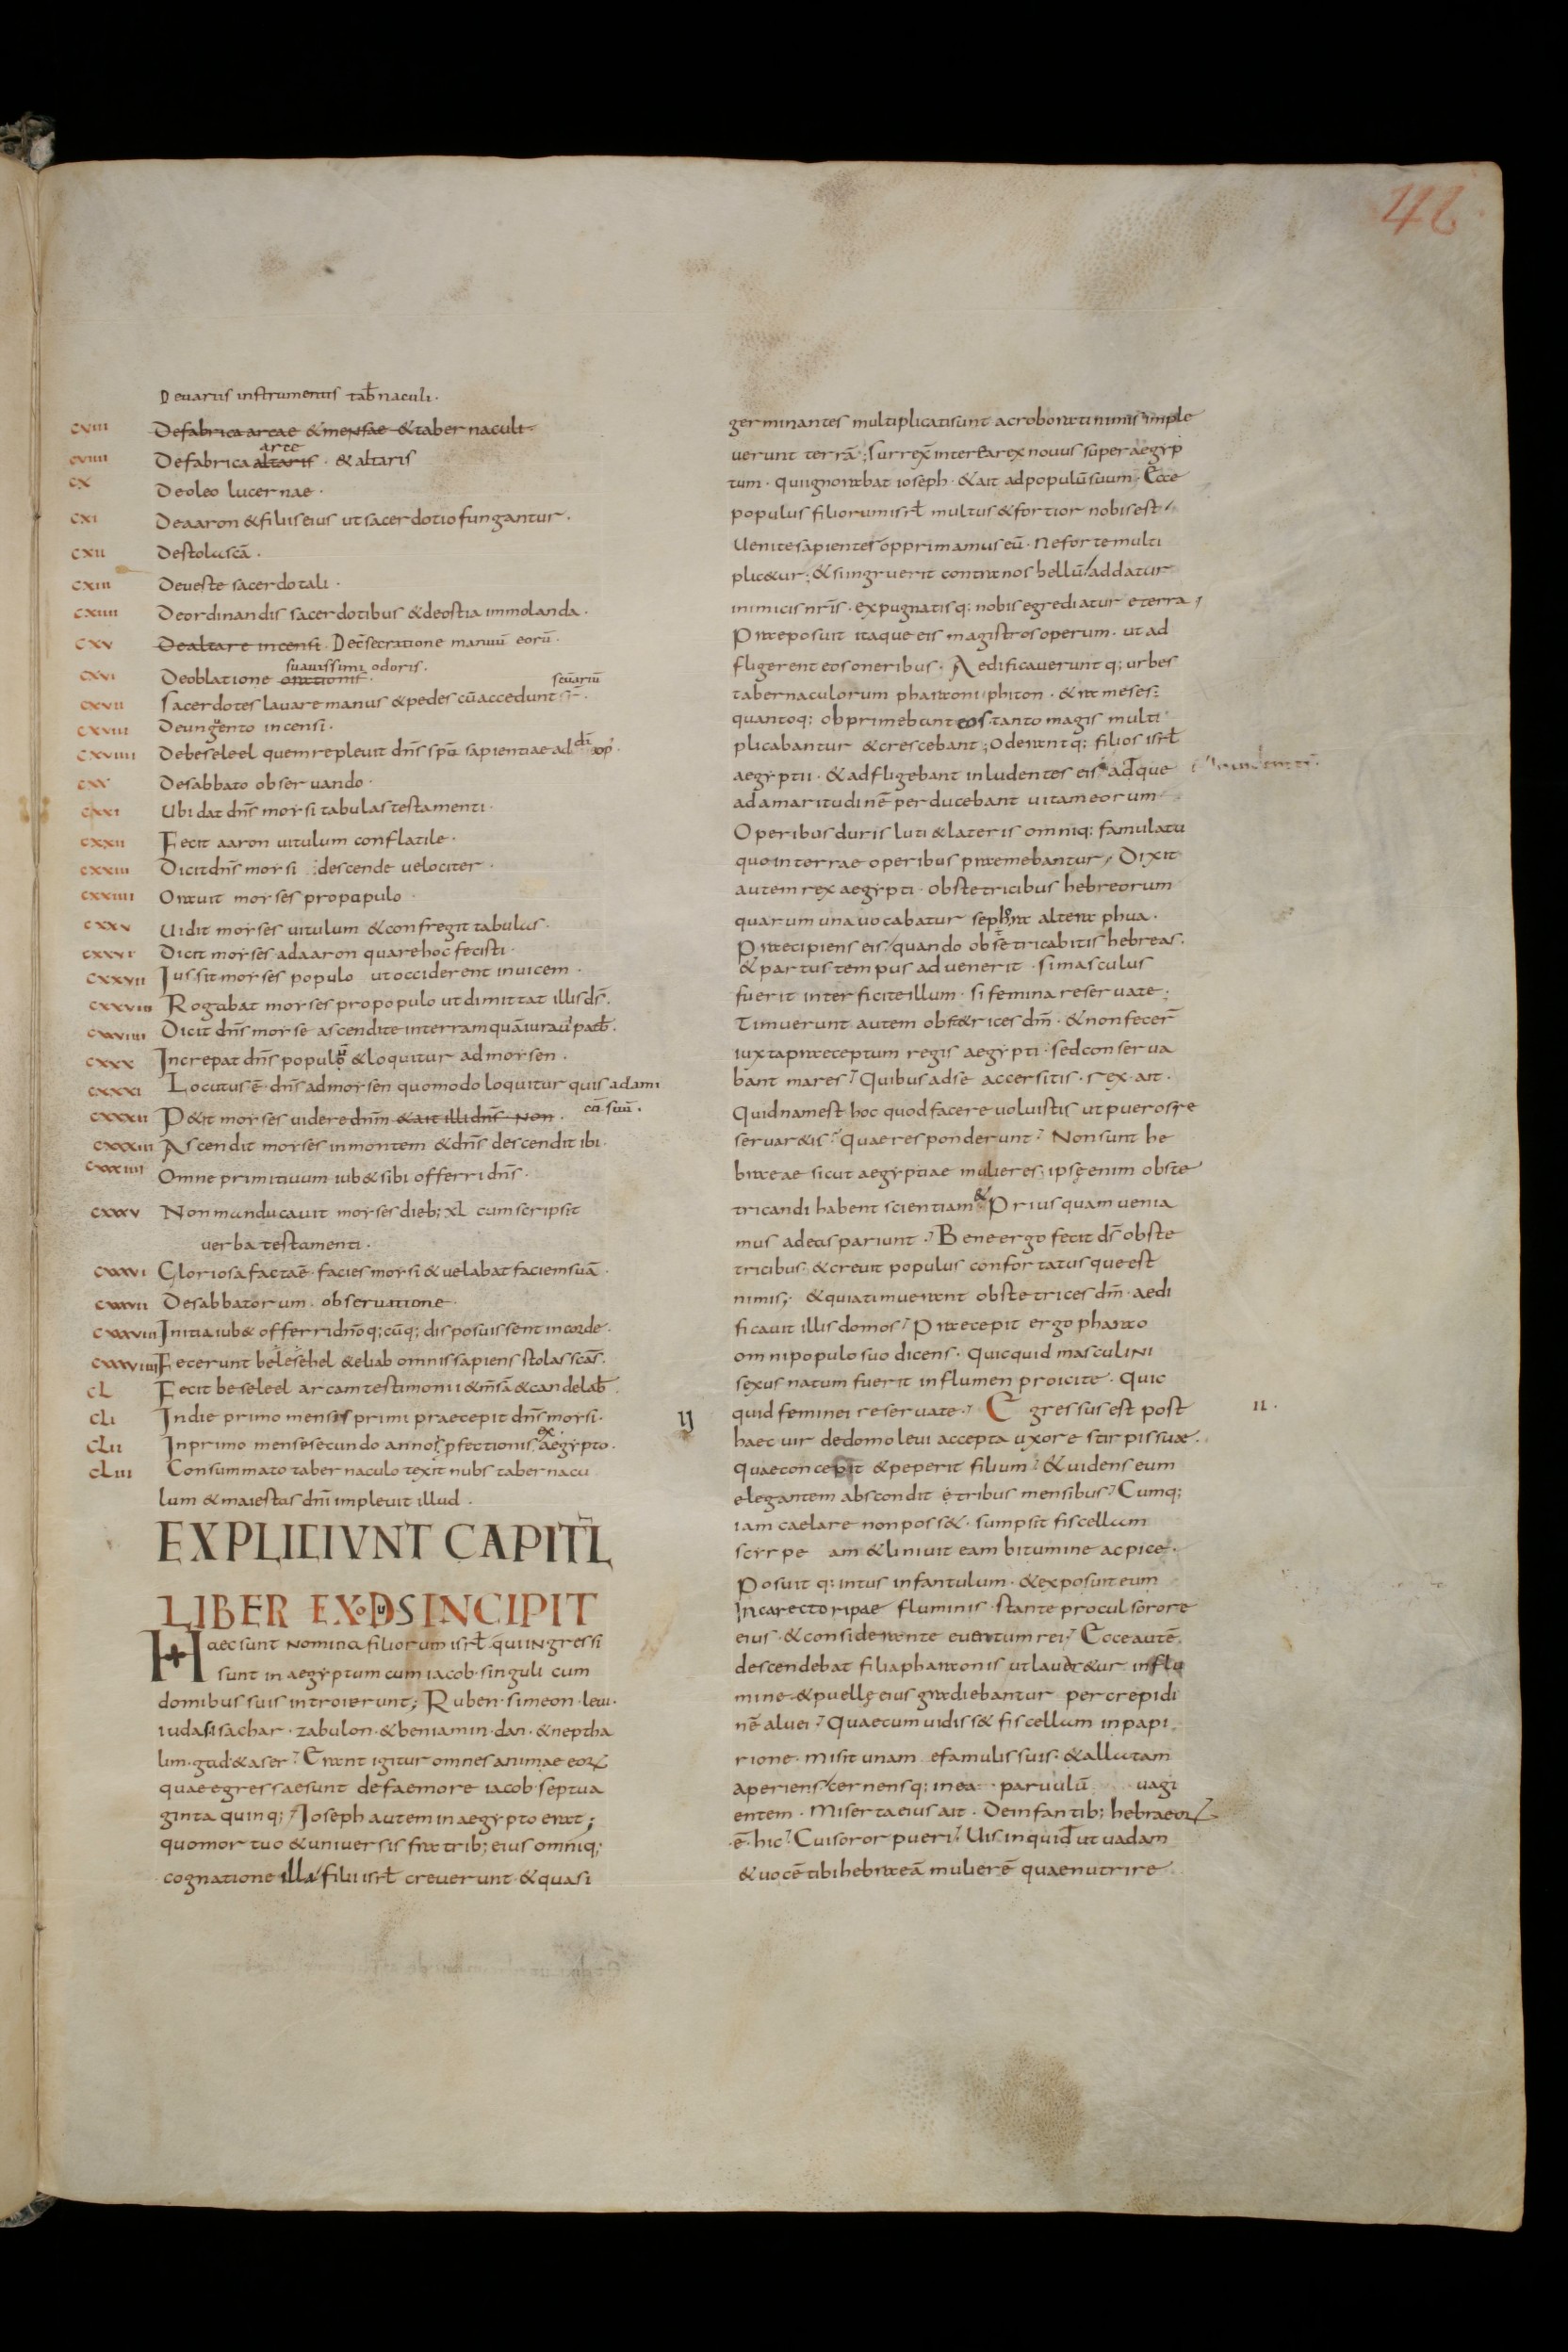 42
De uariis instrumentis tab̄naculi.
CVIII De fabrica arcae & mensae & tabernaculi
arce
CVIIII De fabrica altaris . & altaris
CX De oleo lucernae .
CXI De aaron & filiis eius ut sacerdotio fungantur .
CXII De stola scā .
CXIII De ueste sacerdotali .
CXIIII De ordinandis sacerdotibus & de ostia immolanda .
CXV De altare incensi . De c̄secratione manuū eorū .
suauissimi odoris .
CXVI De oblatione orationis .
CXVII Sacerdotes lauare manus & pedes cū accedunt
CXVIII De unguento incensi .
CXVIIII De beseleel quem repleuit dn̄s sp̄u sapientiae ad
CXX De sabbato obseruando .
CXXI Ubi dat dn̄s moysi tabulas testamenti .
CXXII Fecit aaron uitulum conflatile .
CXXIII Dicit dn̄s moysi descende uelociter .
CXXIIII Orauit moyses pro populo .
CXXV Uidit moyses uitulum & confregit tabulas .
CXXVI Dicit moyses ad aaron quare hoc fecisti .
CXXVII Iussit moyses populo ut occiderent inuicem .
CXXVIII Rogabat moyses pro populo ut dimittat illis dn̄s .
CXXVIIII Dicit dn̄s moyse ascendite in terram quā iuraui
CXXX Increpat dn̄s populū & loquitur ad moysen .
CXXXI Locutus ē dn̄s ad moysen quomodo loquitur quis ad ami
cū suū .
CXXXII P&it moyses uidere dnm̄ & ait illi dn̄s Non .
CXXXIII Ascendit moyses in montem & dn̄s descendit ibi .
CXXXIIII Omne primitiuum iub& sibi offerri dn̄s .
CXXXV Non manducauit moyses dieb; XL cum scripsit
uerba testamenti .
CXXXVI Gloriosa facta ē facies moysi & uelabat faciem suā .
CXXXVII De sabbatorum obseruatione .
CXXXVIII Initia iub& offerri dn̄o q;cūq; disposuissent in corde .
CXXXVIIII Fecerunt belesehel & eliab omnis sapiens stolas scās .
CL Fecit beseleel arcam testimonii & m̄sā & candelab̄ .
CLI In die primo mensis primi praecepit dn̄s moysi .
CLII In primo mense secundo anno pfectionis ex aegypto .
CLIII Consummato tabernaculo texit nubs tabernacu
lum & maiestas dn̄i impleuit illud .
EXPLICIUNT CAPITL̄
LIBER EXODUS INCIPIT
Haec sunt nomina filiorum isrl̄ qui ingressi
sunt in aegyptum cum iacob . singuli cum
domibus suis introierunt; Ruben . simeon . leui .
iudas isachar . zabulon . & beniamin . dan . & neptha
lim . gad & aser . Erant igitur omnes animae eoꝝ
quae egressae sunt de faemore iacob septua
ginta quinq; Ioseph autem in aegypto erat;
quo mortuo & uniuersis fratrib; eius omniq;
cognatione illa filii isrl̄ creuerunt & quasi
germinantes multiplicati sunt ac roborati nimis imple
uerunt terrā; Surrex̄ interea rex nouus super aegyp
tum . qui ignorabat ioseph . & ait ad populū suum; Ecce
populus filiorum isrl̄ multus & fortior nobis est
Uenite sapienter opprimamus eū . Ne forte multi
plic&ur; & si ingruerit contra nos bellū addatur
inimicis nr̄is . expugnatisq; nobis egrediatur e terra
Praeposuit itaque eis magistros operum . ut ad
fligerent eos oneribus . Aedificaueruntq; urbes
tabernaculorum pharaoni phiton . & rameses :
quantoq; obprimebant eos . tanto magis multi
plicabantur & crescebant; Oderantq; filios isrl̄
aegyptii . & adfligebant inludentes eis adque
ad amaritudinē perducebant uitam eorum
Operibus duris luti & lateris omniq; famulatu
quo in terrae operibus praemebantur . Dixit
autem rex aegypti . obstetricibus hebreorum
quarum una uocabatur sephora altera phua .
Praecipiens eis quando obstetricabitis hebreas .
& partus tempus aduenerit . si masculus
fuerit interficite illum . si femina reseruate .
Timuerunt autem obst&rices dm̄ . & non fecer̄
iuxta praeceptum regis aegypti . sed conserua
bant mares . Quibus ad se accersitis . rex ait .
Quidnam est hoc quod facere uoluistis ut pueros re
seruar&is . Quae responderunt . Non sunt he
braeae sicut aegyptiae mulieres; ipsę enim obste
tricandi habent scientiam & Priusquam uenia
mus ad eas pariunt . Bene ergo fecit ds̄ obste
tricibus & creuit populus confortatusque est
nimis; & quia timuerant obstetrices dm̄ . aedi
ficauit illis domos . Praecepit ergo pharao
omni populo suo dicens . Quicquid masculini
sexus natum fuerit in flumen proicite . Quic
quid feminei reseruate . Egressus est post
II .
haec uir de domo leui accepta uxore stirpis suae .
Quae concepit & peperit filium . & uidens eum
elegantem abscondit tribus mensibus . Cumq;
iam caelare non poss& . sumpsit fiscellam
scyrpeam & liniuit eam bitumine ac pice .
Posuitq; intus infantulum . & exposuit eum
In carecto ripae fluminis . stante procul sorore
eius . & considerante euentum rei . Ecce autē
descendebat filia pharaonis ut lauar&ur in flu
mine . & puellę eius gradiebantur per crepidi
nē aluei . Quae cum uidiss& fiscellam in papi
rione . misit unam e famulis suis . & allatam
aperiens cernensq; in ea paruulū uagi
entem . Miserta eius ait . De infantib; hebraeoꝝ
ē hic . Cui soror pueri . Uis inquid ut uadam
& uocē tibi hebraeā mulierē quae nutrire